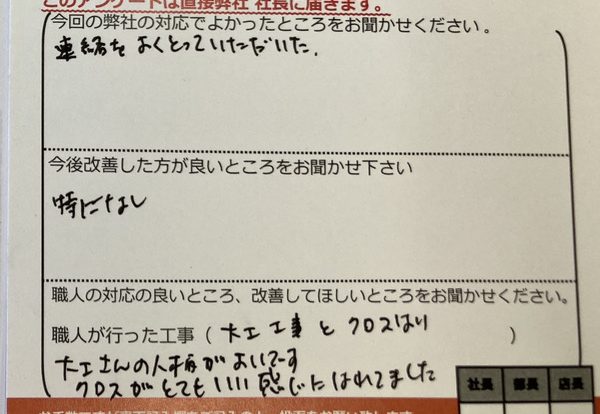 このアンケートは直接弊社 社長に届きます。
今回の弊社の対応でよかったところをお聞かせください。
連絡をよくとっていただいた.
今後改善した方が良いところをお聞かせ下さい
特になし
職人の対応の良いところ、改善してほしいところをお聞かせください。
職人が行った工事（ 大工工事とクロスはり ）
大工さんの人柄がよいです
クロスがとてもいい感じにはれてました
社長 部長 店長